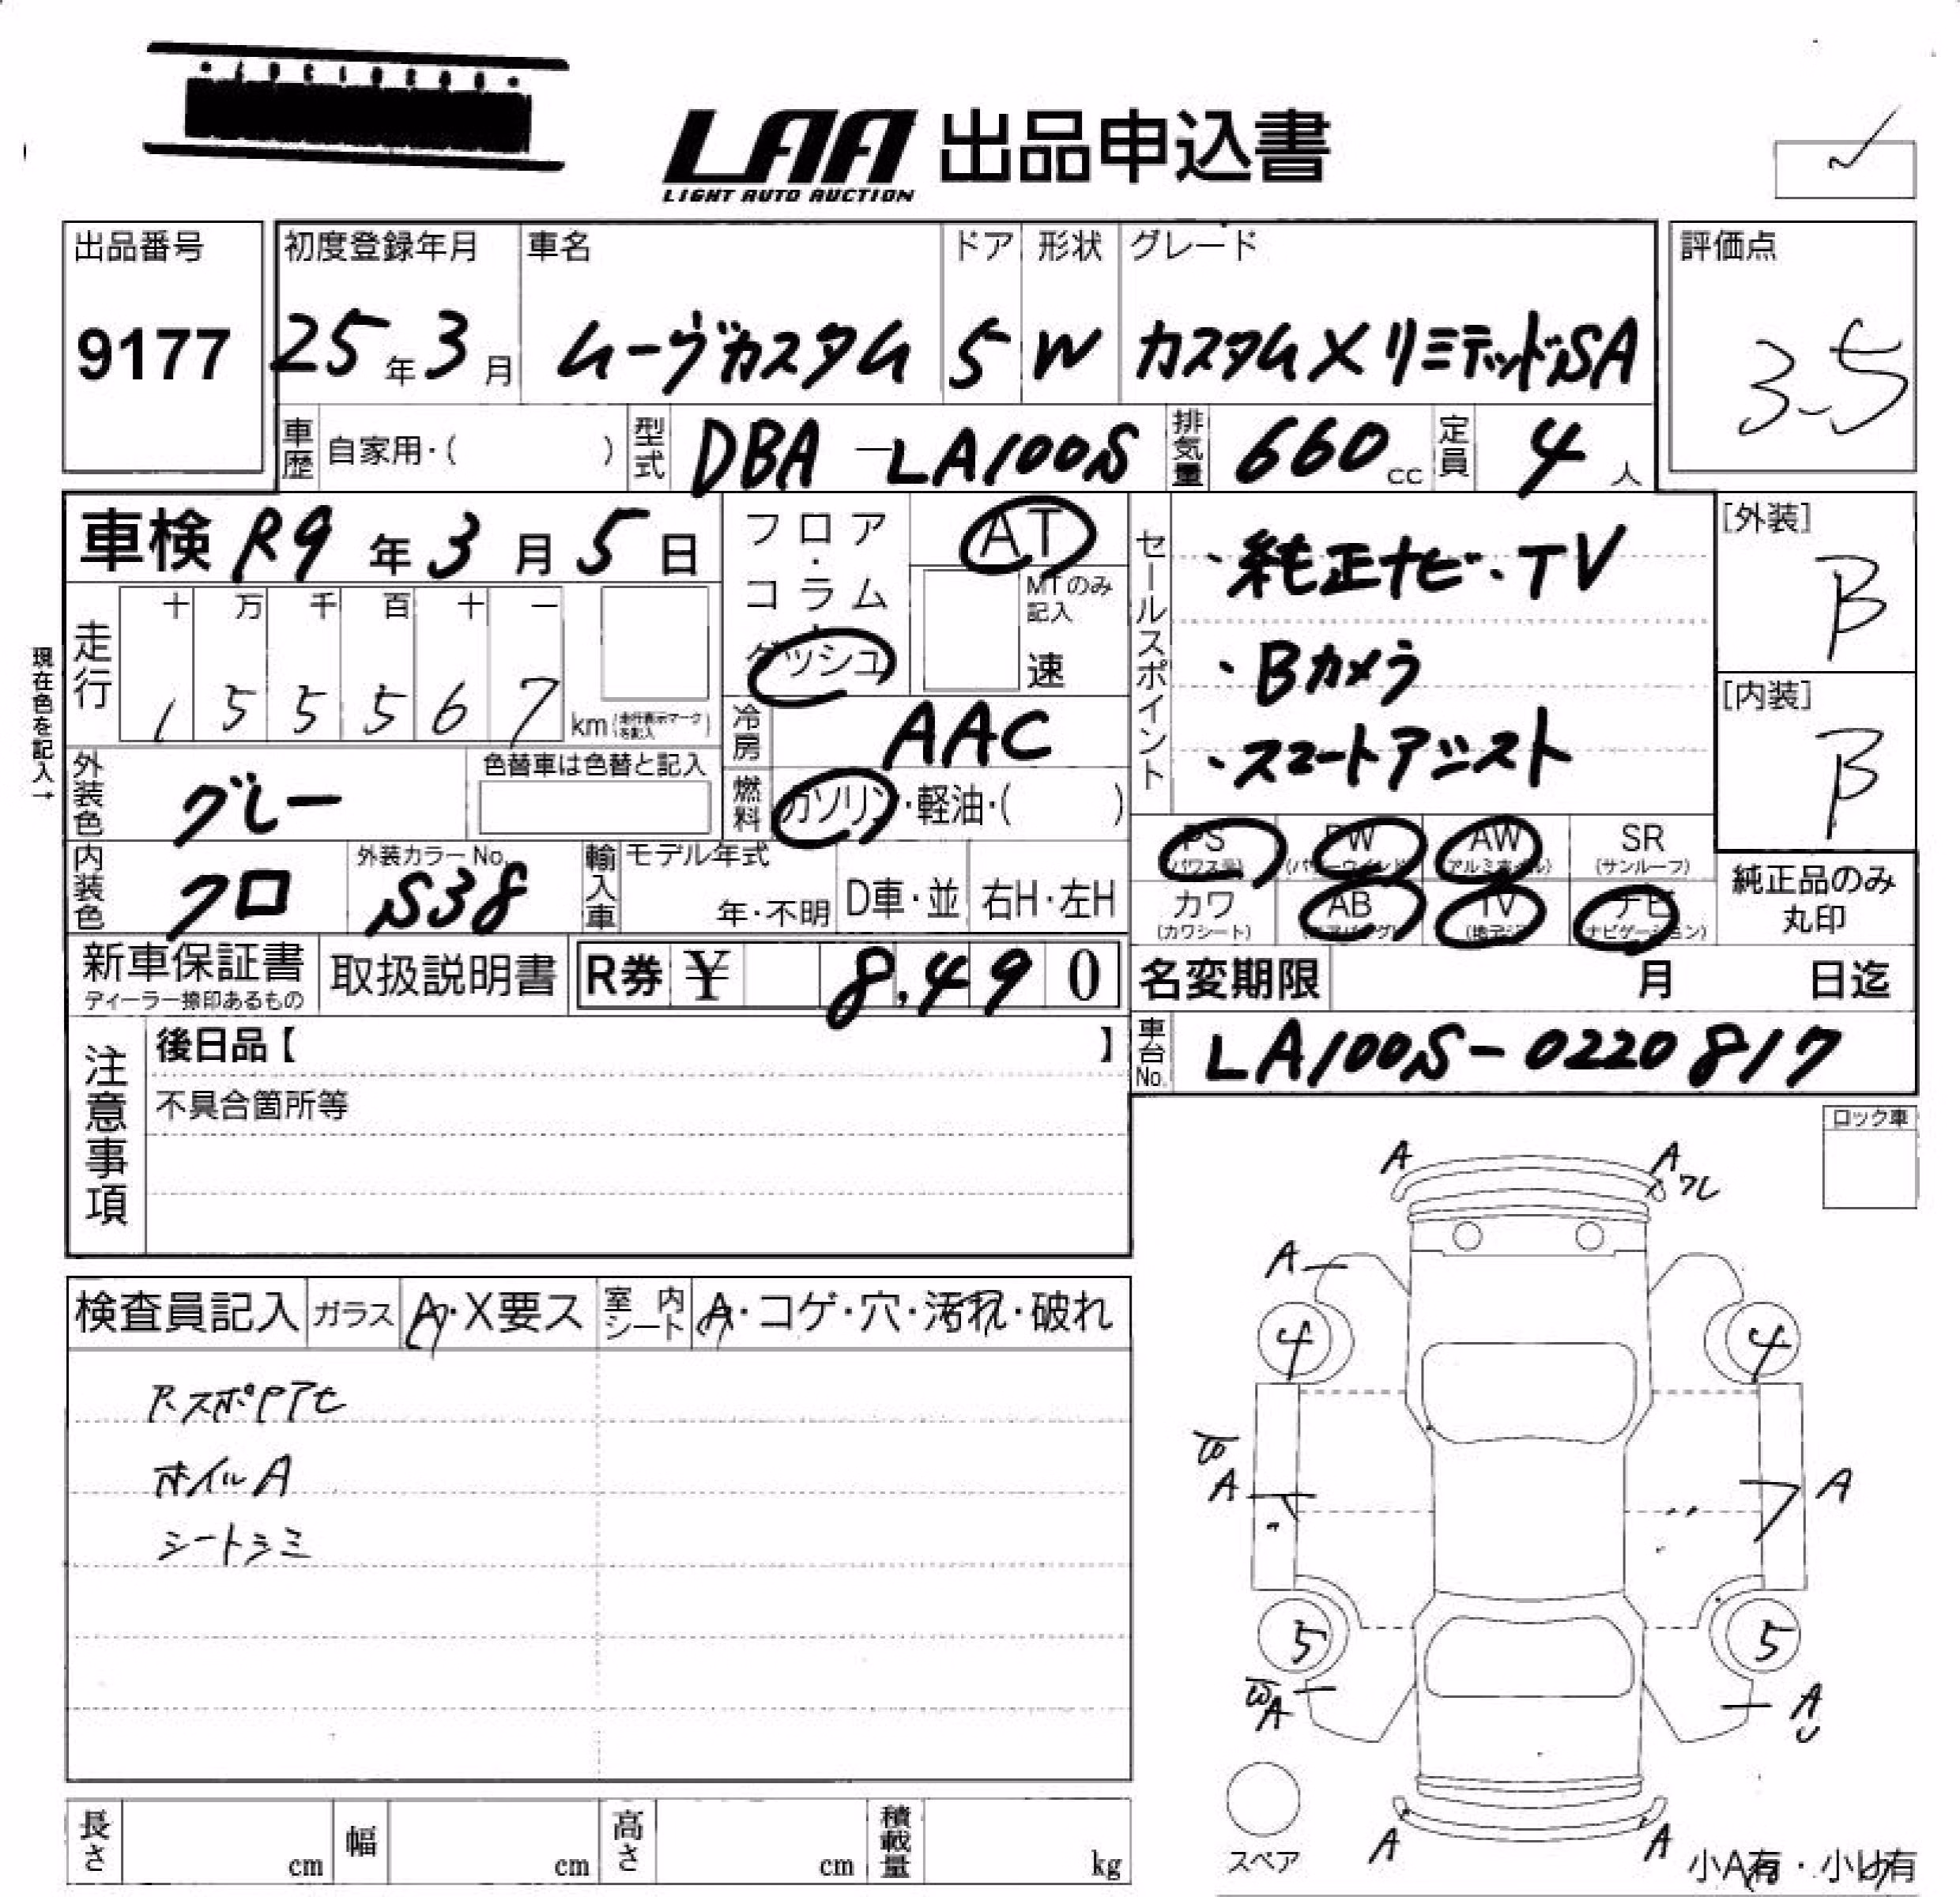 LAA 出品申込書
LIGHT AUTO AUCTION
出品番号
9177
初度登録年月
25年3月
車名
ムーヴカスタム
ドア
5
形状
W
グレード
カスタムXリミテッドSA
評価点
3.5
車歴 自家用・( )
型式 DBA-LA100S
排気量 660cc
定員 4人
車検 R9年3月5日
フロア・コラム・ダッシュ
AT
MTのみ記入
速
セールスポイント
・純正ナビ・TV
・Bカメラ
・スマートアシスト
[外装]
B
[内装]
B
現在色を記入→
走行
十 万 千 百 十 一
1 5 5 5 6 7 km (走行表示マークを記入)
冷房 AAC
外装色 グレー
色替車は色替と記入
燃料 ガソリン・軽油・( )
内装色 クロ
外装カラーNo. S38
輸入車
モデル年式
年・不明
D車・並
右H・左H
PS (パワステ)
PW (パワーウインド)
AW (アルミホイル)
SR (サンルーフ)
カワ (カワシート)
AB (エアバッグ)
TV (地デジ)
ナビ (ナビゲーション)
純正品のみ丸印
新車保証書
ディーラー捺印あるもの
取扱説明書
R券 ¥ 8,490
名変期限 月 日迄
車台No. LA100S-0220817
注意事項
後日品【 】
不具合箇所等
ロック車
検査員記入
ガラス A・X要ス
室内シート A・コゲ・穴・汚れ・破れ
ホイルA
シートシミ
A A
ワレ
A
4 4
W
A A
5 5
W
A A
U
スペア
A A
小A有・小U有
長さ cm
幅 cm
高さ cm
積載量 kg